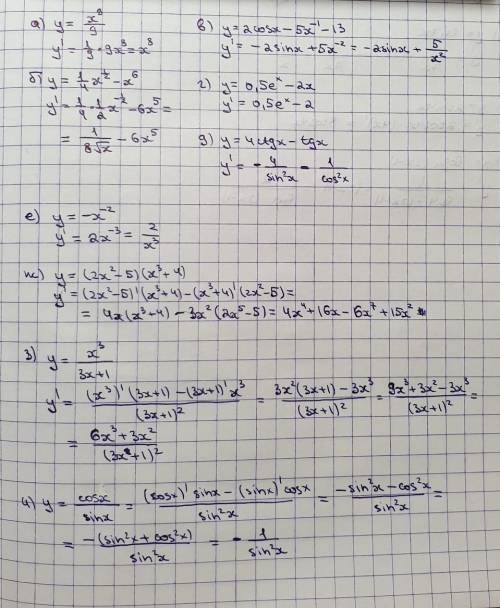 а) y = x⁹/9
y' = 1/9 · 9x⁸ = x⁸
б) y = 1/4 x^(1/2) − x⁶
y' = 1/4 · 1/2 x^(−1/2) − 6x⁵ =
= 1/(8√x) − 6x⁵
в) y = 2cosx − 5x⁻¹ − 13
y' = −2sinx + 5x⁻² = −2sinx + 5/x²
г) y = 0,5eˣ − 2x
y' = 0,5eˣ − 2
д) y = 4ctgx − tgx
y' = −4/sin²x − 1/cos²x
е) y = −x⁻²
y' = 2x⁻³ = 2/x³
ж) y = (2x² − 5)(x³ + 4)
y' = (2x² − 5)'(x³ + 4) − (x³ + 4)'(2x² − 5) =
= 4x(x³ + 4) − 3x²(2x⁵ − 5) = 4x⁴ + 16x − 6x⁷ + 15x²
з) y = x³/(3x + 1)
y' = ((x³)'(3x + 1) − (3x + 1)'x³)/(3x + 1)² = (3x²(3x + 1) − 3x³)/(3x + 1)² = (9x³ + 3x² − 3x³)/(3x + 1)² =
= (6x³ + 3x²)/(3x² + 1)²
и) y = cosx/sinx = ((cosx)' sinx − (sinx)' cosx)/sin²x = (−sin²x − cos²x)/sin²x =
= −(sin²x + cos²x)/sin²x = −1/sin²x